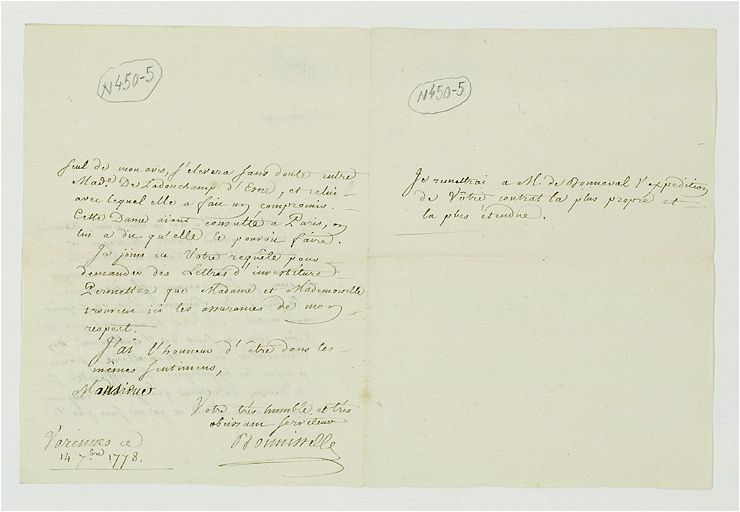 N450-5
seul de mon avis, s'elevera sans doute entre
Made. De Ladonchamp d'Esne, et celui
avec lequel elle a fait un compromis.
Cette Dame aiant consulté a Paris, on
lui a du qu'elle le pouvoit faire.
Je joins ici Votre requête pour
demander des Lettres d'investiture.
Permettez que Madame et Mademoiselle
trouvent ici les assurances de mon
respect.
J'ai l'honneur d'être dans les
mêmes sentimens,
Monsieur
Votre très humble et très
obéissant serviteur
Varennes ce
14. 7bre 1778.
N450-5
Je remettrai a M. de Bonneval l'expedition
de Vôtre contrat la plus propre et
la plus étendue.